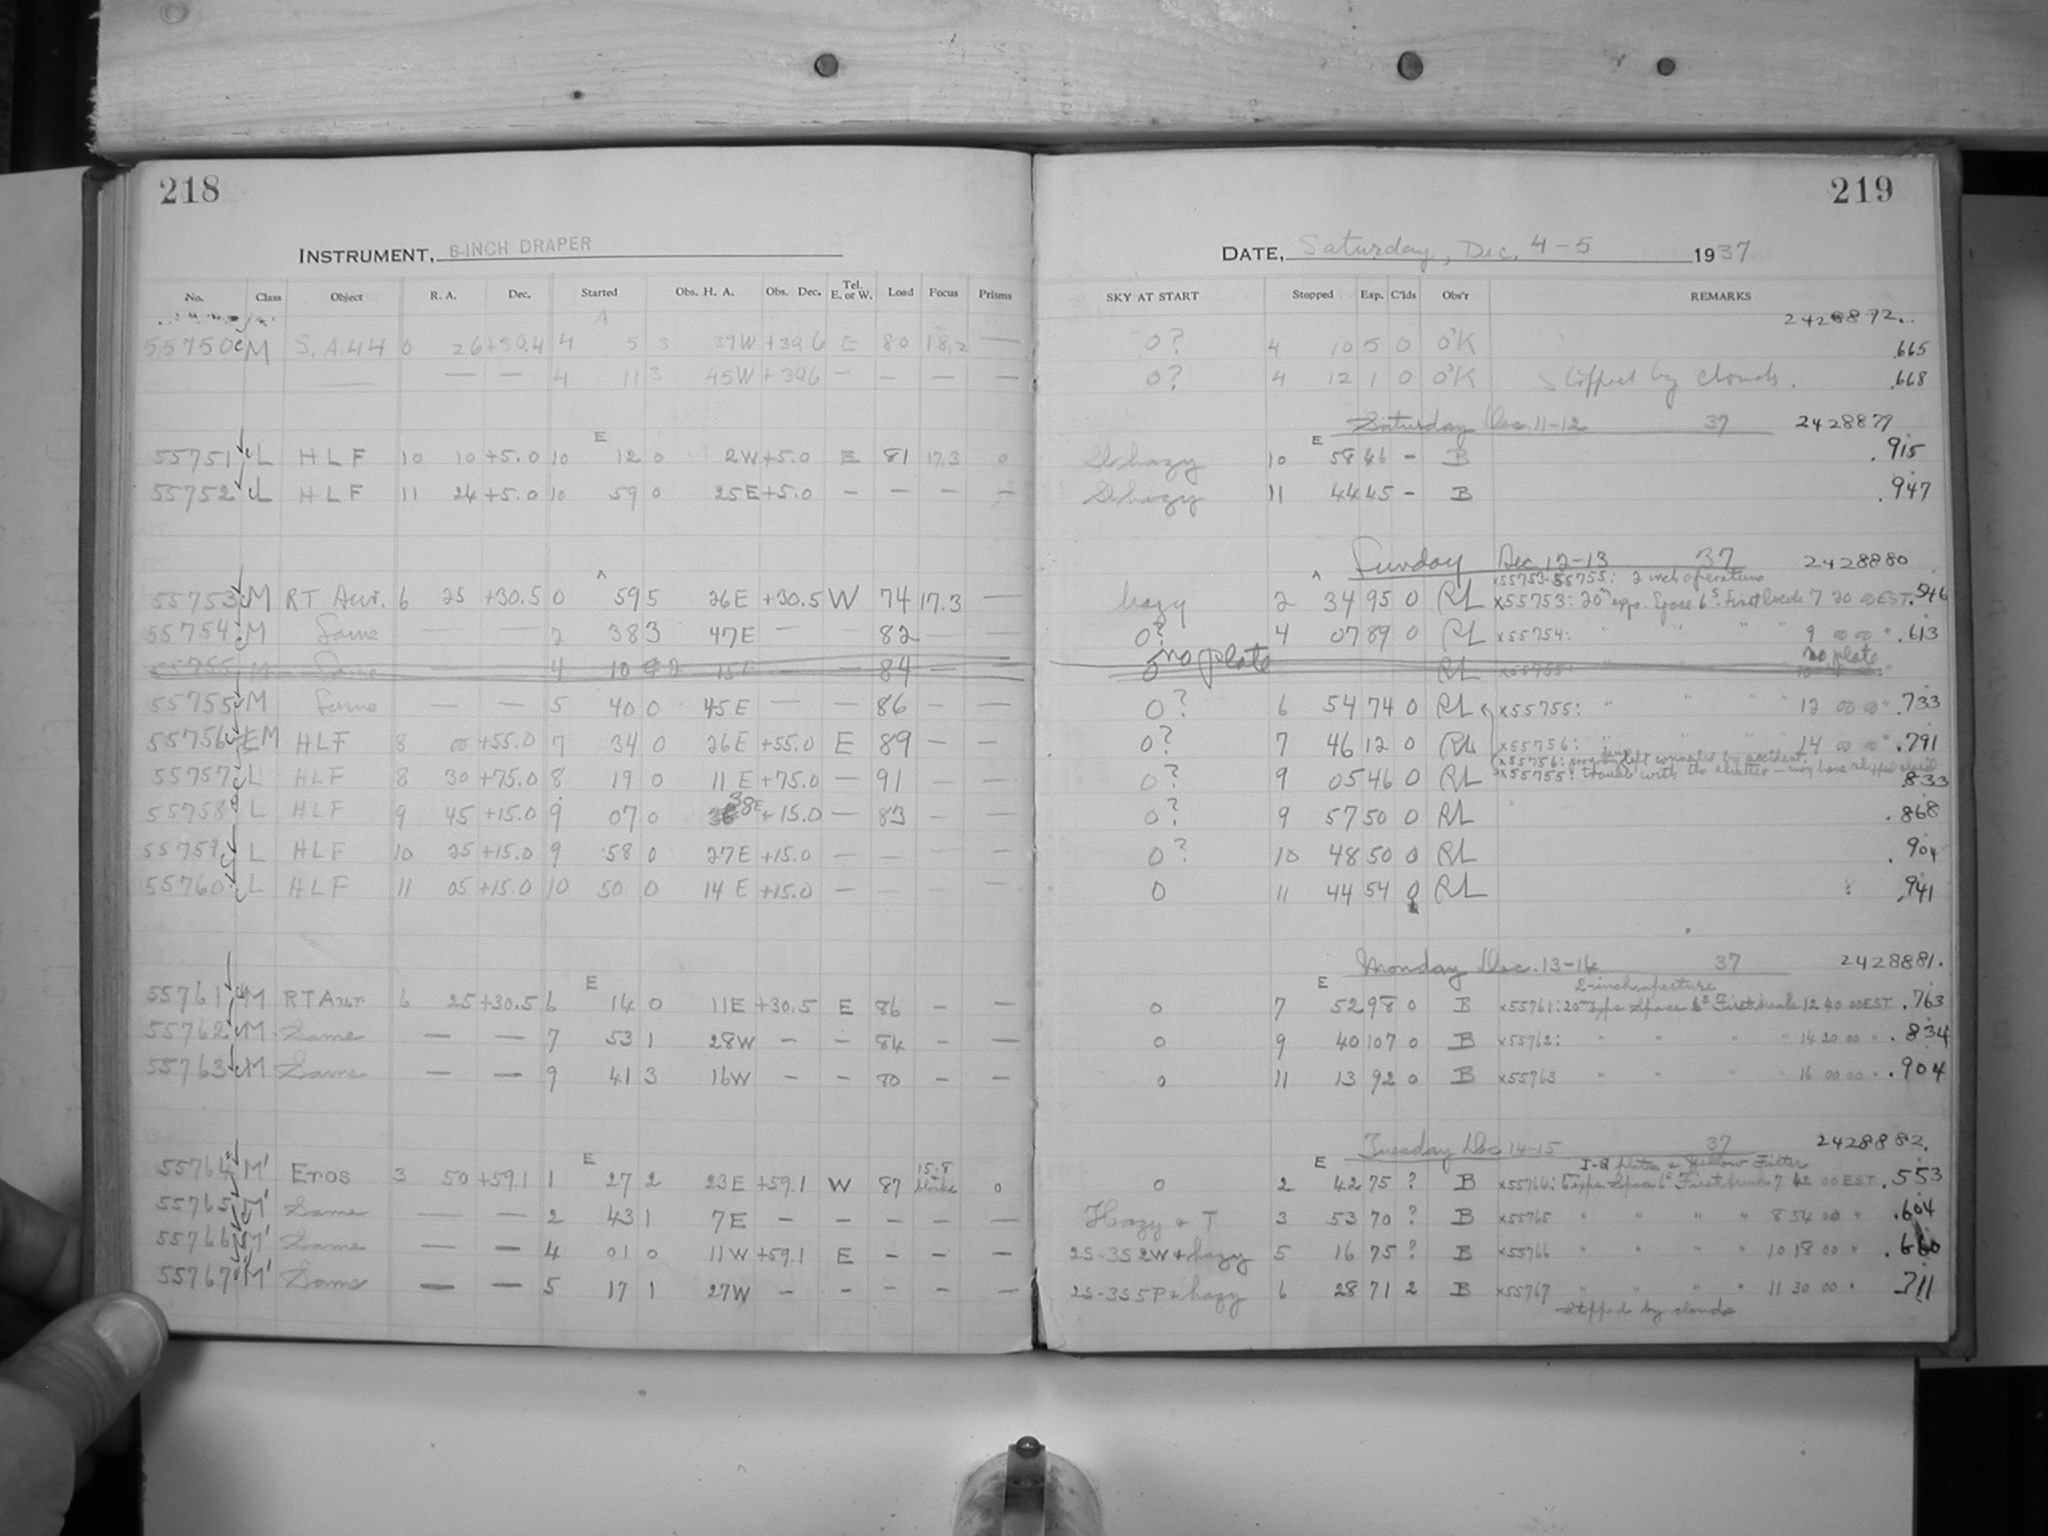 218
219
INSTRUMENT, 8-INCH DRAPER
DATE, Saturday, Dec. 4-5 1937
No. Class Object R. A. Dec. Started Obs. H. A. Obs. Dec. Tel. E. or W. Load Focus Prisms SKY AT START Stopped Exp. C'lds Obs'r REMARKS
A 2428872.
55750 M S.A.44 0 26 +39.4 4 5 3 37W +39.6 E 80 18.2 — 0? 4 10 5 0 O'K .665
— — — 4 11 3 45W +39.6 — — — — 0? 4 12 1 0 O'K Stopped by clouds. .668
Saturday Dec. 11-12 37 2428879
E E
55751 L HLF 10 10 +5.0 10 12 0 2W +5.0 E 81 17.3 0 hazy 10 58 46 - B .915
55752 L HLF 11 24 +5.0 10 59 0 25E +5.0 — — — — hazy 11 44 45 - B .947
Sunday Dec. 12-13 37 2428880
A A x55753-55755: 2 inch aperture
55753 M RT Aur. 6 25 +30.5 0 59 5 26E +30.5 W 74 17.3 — hazy 2 34 95 0 RL x55753: 20m exps. Space 6s. First break 7 20 00 EST .546
55754 M Same — — 2 38 3 47E — — 82 — — 0? 4 07 89 0 RL x55754: " " " " 9 00 00 " .613
55755 M Same — — 4 10 2 15E — — 84 — — 0 no plate RL x55755: no plate
55755 M Same — — 5 40 0 45E — — 86 — — 0? 6 54 74 0 RL x55755: " " " 12 00 00 " .733
55756 EM HLF 8 00 +55.0 7 34 0 26E +55.0 E 89 — — 0? 7 46 12 0 RL x55756: " " " 14 00 00 " .791
x55756: left connected by accident.
55757 L HLF 8 30 +75.0 8 19 0 11E +75.0 — 91 — — 0? 9 05 46 0 RL x55755: trouble with the shutter — may have slipped .833
55758 L HLF 9 45 +15.0 9 07 0 38E +15.0 — 83 — — 0? 9 57 50 0 RL .868
55759 L HLF 10 25 +15.0 9 58 0 27E +15.0 — — — — 0? 10 48 50 0 RL .904
55760 L HLF 11 05 +15.0 10 50 0 14E +15.0 — — — — 0 11 44 54 0 RL .941
Monday Dec. 13-14 37 2428881.
E E 2-inch aperture
55761 M RT Aur 6 25 +30.5 6 14 0 11E +30.5 E 86 - — 0 7 52 98 0 B x55761: 20m exps Space 6s First break 12 40 00 EST .763
55762 M Same — — 7 53 1 28W — — 84 - — 0 9 40 107 0 B x55762: " " " 14 20 00 " .834
55763 M Same — — 9 41 3 16W — — 80 - — 0 11 13 92 0 B x55763 " " " 16 00 00 " .904
Tuesday Dec 14-15 37 2428882.
E E I-Q plates & Yellow Filter
55764 M' Eros 3 50 +59.1 1 27 2 23E +59.1 W 87 15.8 0 0 2 42 75 ? B x55764: 6m exps Space 6s First break 7 42 00 EST .553
55765 M' Same — — 2 43 1 7E — — — — — Hazy & T 3 53 70 ? B x55765 " " " " 8 54 00 " .604
55766 M' Same — — 4 01 0 11W +59.1 E - - — 2S-3S 2W & hazy 5 16 75 ? B x55766 " " " " 10 18 00 " .660
55767 M' Same — — 5 17 1 27W - - - - — 2S-3S 5P & hazy 6 28 71 2 B x55767 " " " " 11 30 00 " .711
Stopped by clouds